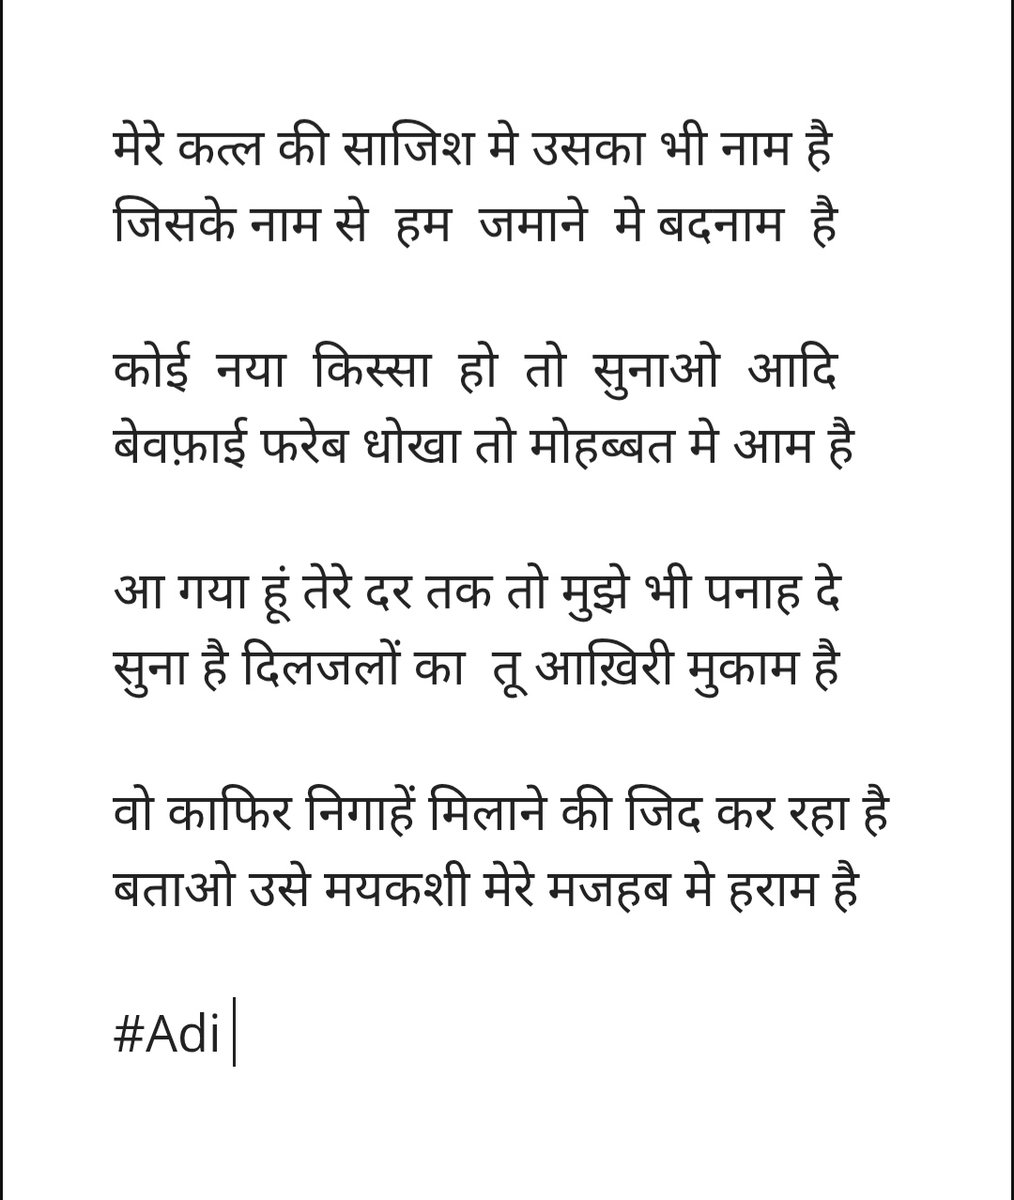 मेरे कत्ल की साजिश मे उसका भी नाम है
जिसके नाम से हम जमाने मे बदनाम है
कोई नया किस्सा हो तो सुनाओ आदि
बेवफ़ाई फरेब धोखा तो मोहब्बत मे आम है
आ गया हूं तेरे दर तक तो मुझे भी पनाह दे
सुना है दिलजलों का तू आख़िरी मुकाम है
वो काफिर निगाहें मिलाने की जिद कर रहा है
बताओ उसे मयकशी मेरे मजहब मे हराम है
#Adi